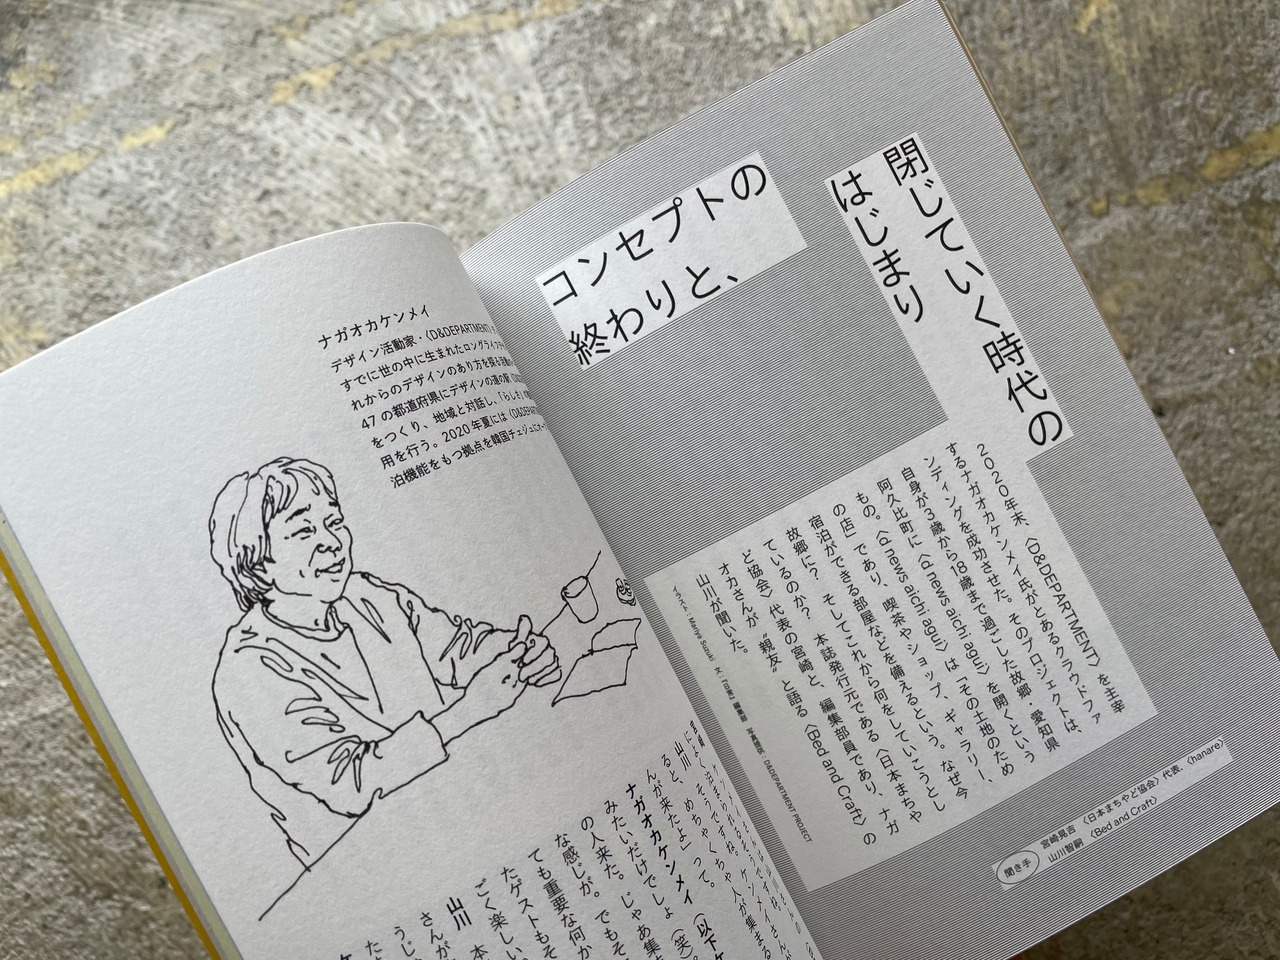 コンセプトの
終わりと、
閉じていく時代の
はじまり
2020年末、〈D&DEPARTMENT〉を主宰
するナガオカケンメイ氏がとあるクラウドファ
ンディングを成功させた。そのプロジェクトは、
自身が3歳から18歳まで過ごした故郷・愛知県
阿久比町に〈d news aichi agui〉を開くという
もの。〈d news aichi agui〉は「その土地のため
の店」であり、喫茶やショップ、ギャラリー、
宿泊ができる部屋などを備えるという。なぜ今
故郷に? そしてこれから何をしていこうとし
ているのか? 本誌発行元である〈日本まちや
ど協会〉代表の宮崎と、編集部員であり、ナガ
オカさんが“親友”と語る〈Bed and Craft〉の
山川が聞いた。
イラスト: 文:『日常』編集部 写真提供:D&DEPARTMENT PROJECT
聞き手
宮崎晃吉〈日本まちやど協会〉代表、〈hanare〉
山川智嗣〈Bed and Craft〉
ナガオカケンメイ
デザイン活動家・〈D&DEPARTMENT〉
すでに世の中に生まれたロングライフ
れからのデザインのあり方を探る
47の都道府県にデザインの道の駅
をつくり、地域と対話し、「らしさ」
用を行う。2020年夏には〈D&DEPA
泊機能をもつ拠点を韓国チェジュに
山川
ると、めちゃくちゃ人が集まる
んが来たよ」って。
ナガオカケンメイ(以下
みたいだけでしょ(笑)。
の人来た。じゃあ集
な感じが。でもそ
ても重要な何か
たゲストもそ
ごく楽しい。
山川 本
さんが
うじ
た
ケ